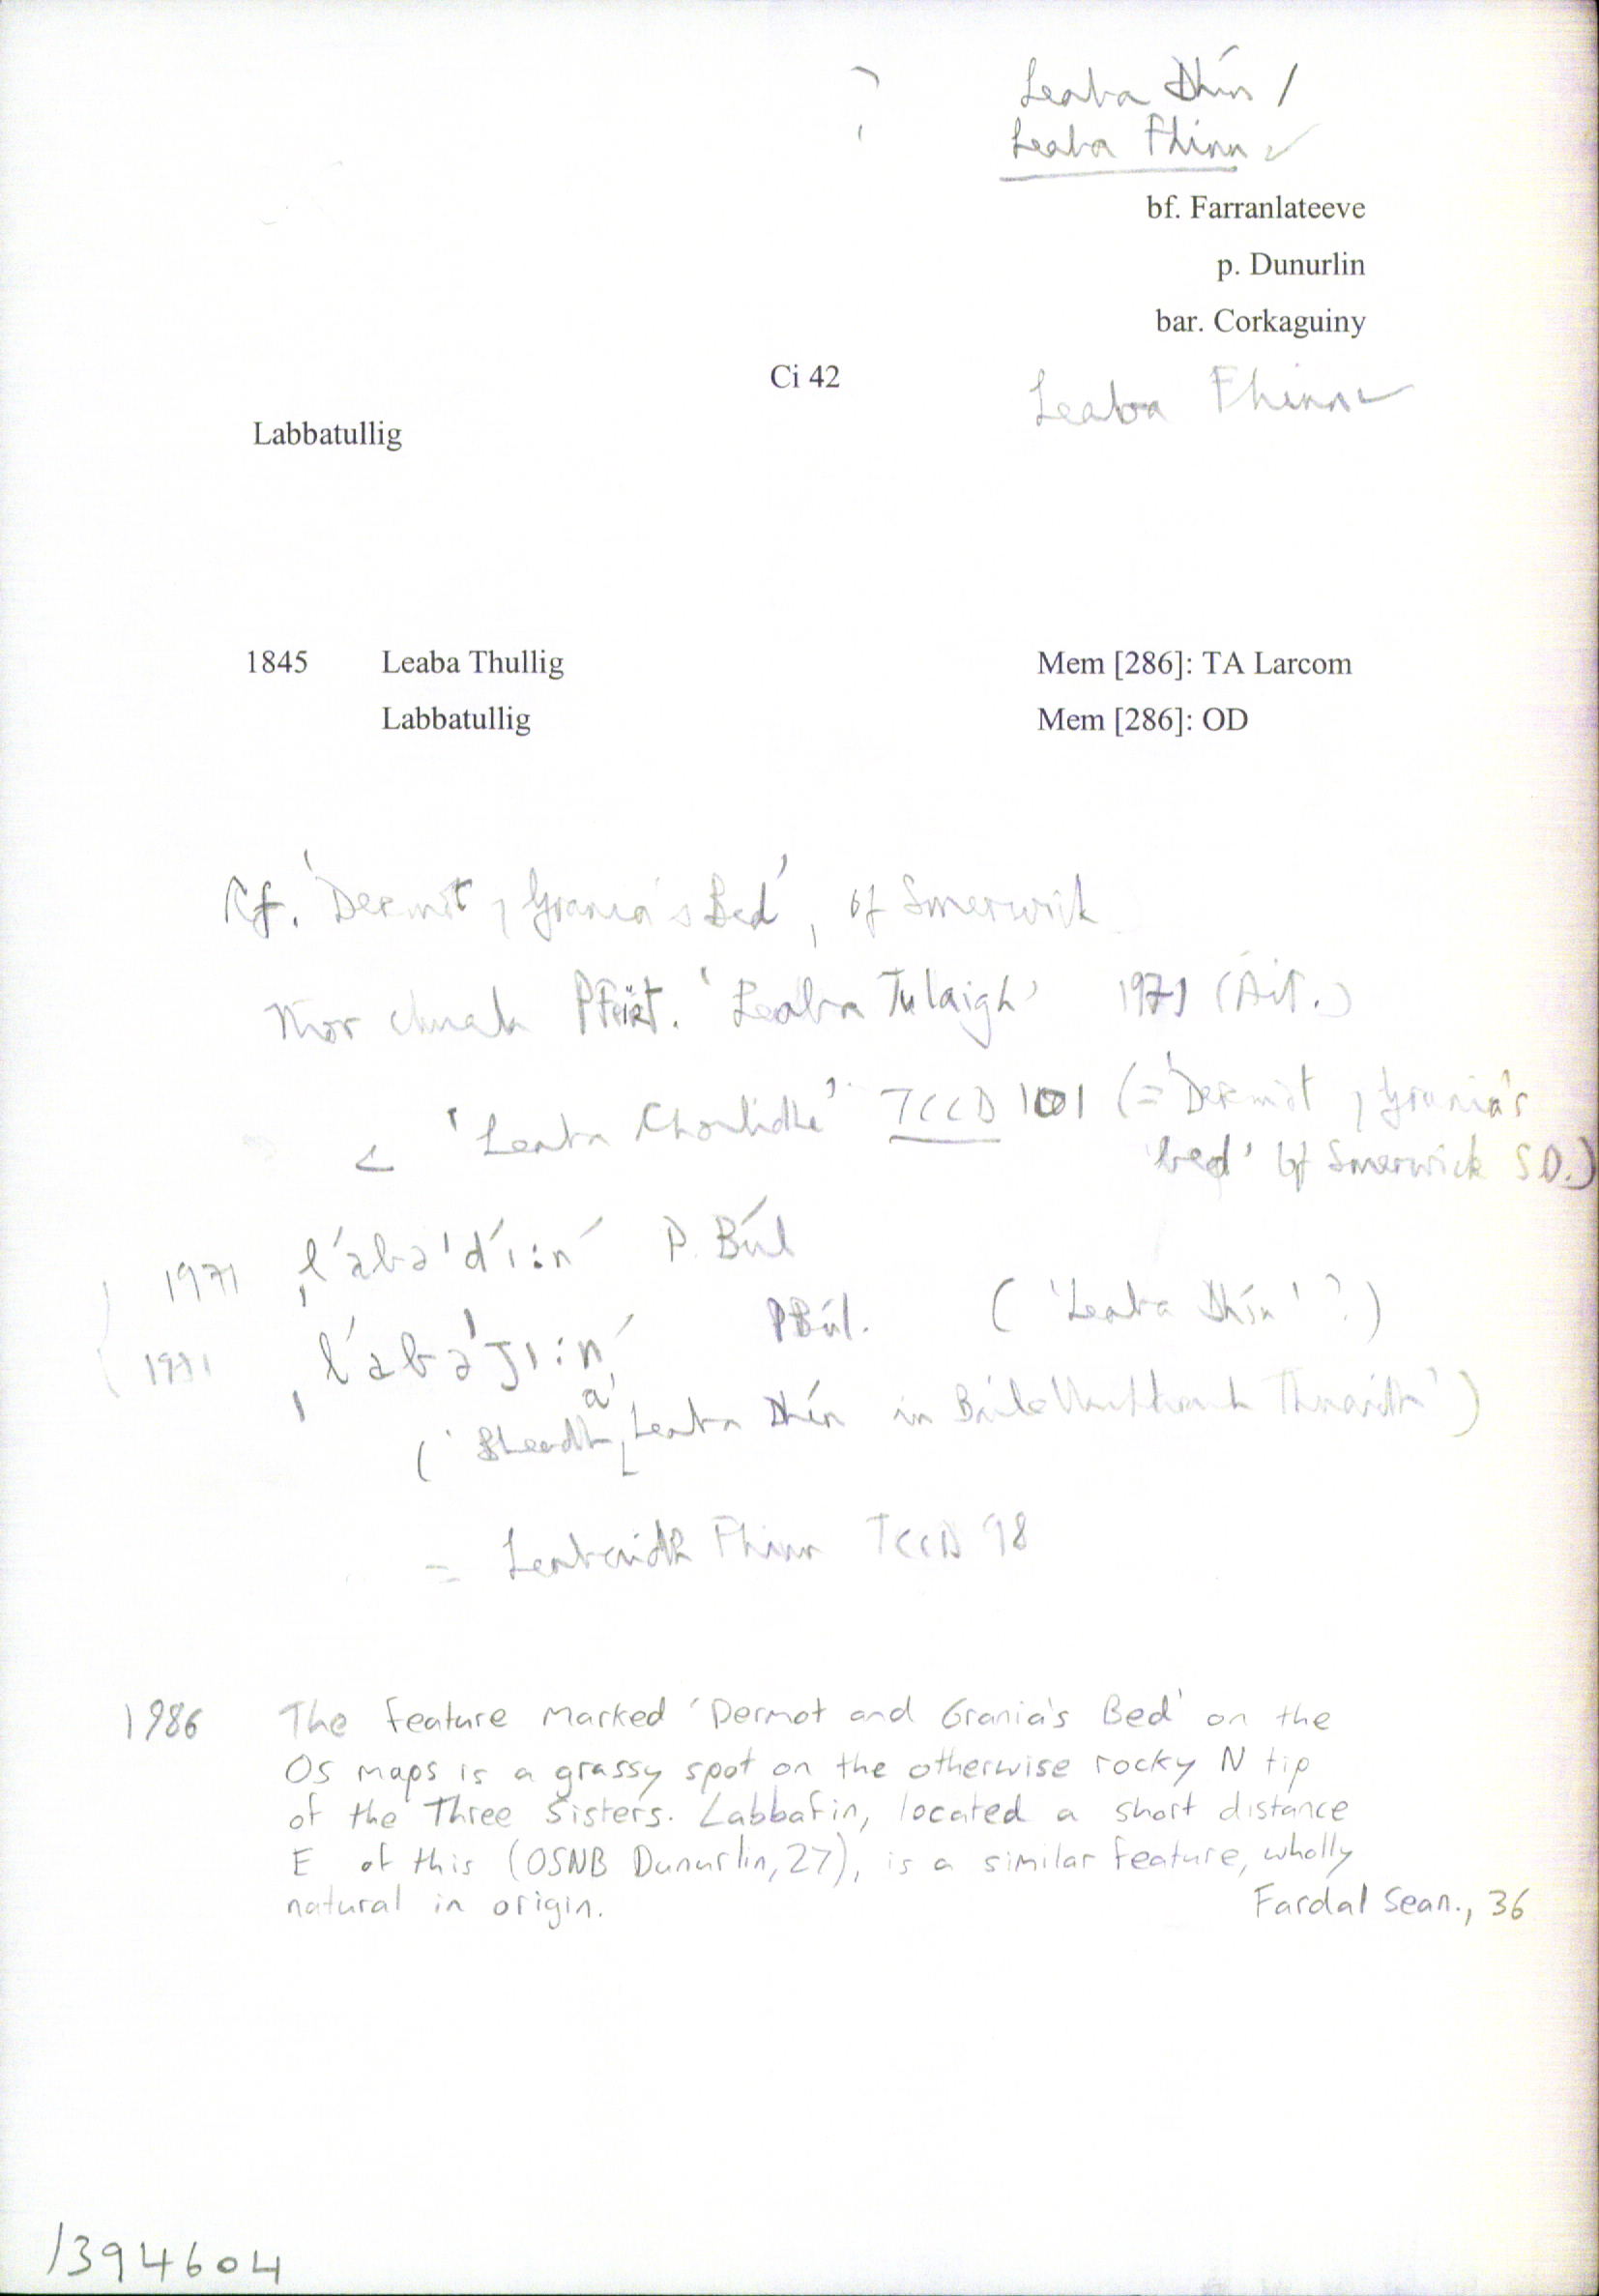 ?
Leaba Dhín /
Leaba Fhinn ✓
bf. Farranlateeve
p. Dunurlin
bar. Corkaguiny
Ci 42
Leaba Fhinn ✓
Labbatullig
1845 Leaba Thullig Mem [286]: TA Larcom
Labbatullig Mem [286]: OD
Rf. 'Dermot ⁊ Grania's Bed', bf Smerwick
Níor chuala PFéirt. 'Leaba Tulaigh' 1971 (Áit.)
< 'Leaba' TCCD 101 (= 'Dermot ⁊ Grania's
bed' bf Smerwick S.D.)
1971 ˌl´abə'd´i:n´ P. Búl
1971 ˌl´abə'ɟi:n´ PBúl. ('Leaba Dhín'?)
('Bheadh a' Leaba Dhín in Baile Uachtarach Thuaidh')
= Leabaidh Fhinn TCCD 98
1986 The feature marked 'Dermot and Grania's Bed' on the
OS maps is a grassy spot on the otherwise rocky N tip
of the Three Sisters. Labbafin, located a short distance
E of this (OSNB Dunurlin, 27), is a similar feature, wholly
natural in origin. Fardal Sean., 36
1394604